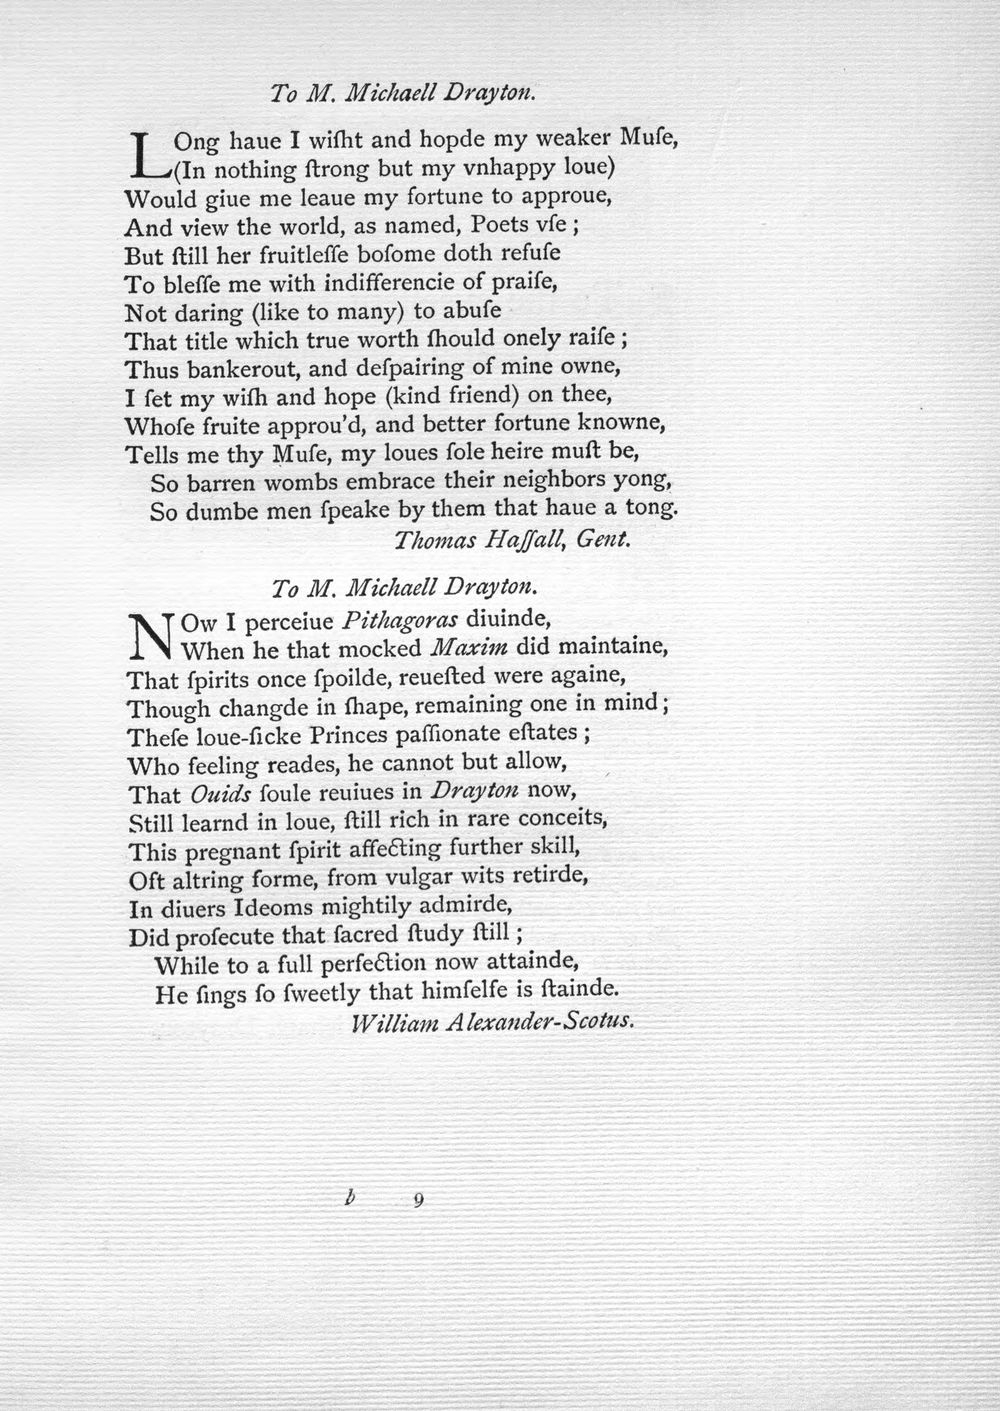 To M. Michaell Drayton.
LOng haue I wiſht and hopde my weaker Muſe,
(In nothing ſtrong but my vnhappy loue)
Would giue me leaue my fortune to approue,
And view the world, as named, Poets vſe ;
But ſtill her fruitleſſe boſome doth refuſe
To bleſſe me with indifferencie of praiſe,
Not daring (like to many) to abuſe
That title which true worth ſhould onely raiſe ;
Thus bankerout, and deſpairing of mine owne,
I ſet my wiſh and hope (kind friend) on thee,
Whoſe fruite approu'd, and better fortune knowne,
Tells me thy Muſe, my loues ſole heire muſt be,
So barren wombs embrace their neighbors yong,
So dumbe men ſpeake by them that haue a tong.
Thomas Haſſall, Gent.
To M. Michaell Drayton.
NOw I perceiue Pithagoras diuinde,
When he that mocked Maxim did maintaine,
That ſpirits once ſpoilde, reueſted were againe,
Though changde in ſhape, remaining one in mind ;
Theſe loue-ſicke Princes paſſionate eſtates ;
Who feeling reades, he cannot but allow,
That Ouids ſoule reuiues in Drayton now,
Still learnd in loue, ſtill rich in rare conceits,
This pregnant ſpirit affecting further skill,
Oft altring forme, from vulgar wits retirde,
In diuers Ideoms mightily admirde,
Did proſecute that ſacred ſtudy ſtill ;
While to a full perfection now attainde,
He ſings ſo ſweetly that himſelfe is ſtainde.
William Alexander-Scotus.
b 9